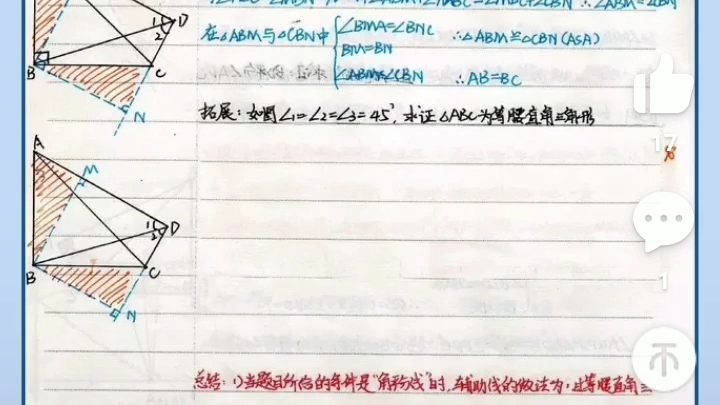 在△ABM与△CBN中 ∠BMA=∠BNC ∴△ABM≌△CBN(ASA)
BM=BN
∠ABM=∠CBN ∴AB=BC
拓展:如图∠1=∠2=∠3=45°,求证△ABC为等腰直角三角形
D
1
2
B
C
N
A
M
1
2
D
B
C
N
17
1
总结:1)当题目所给的条件是"角平分线"时,辅助线的做法为:过等腰直角三